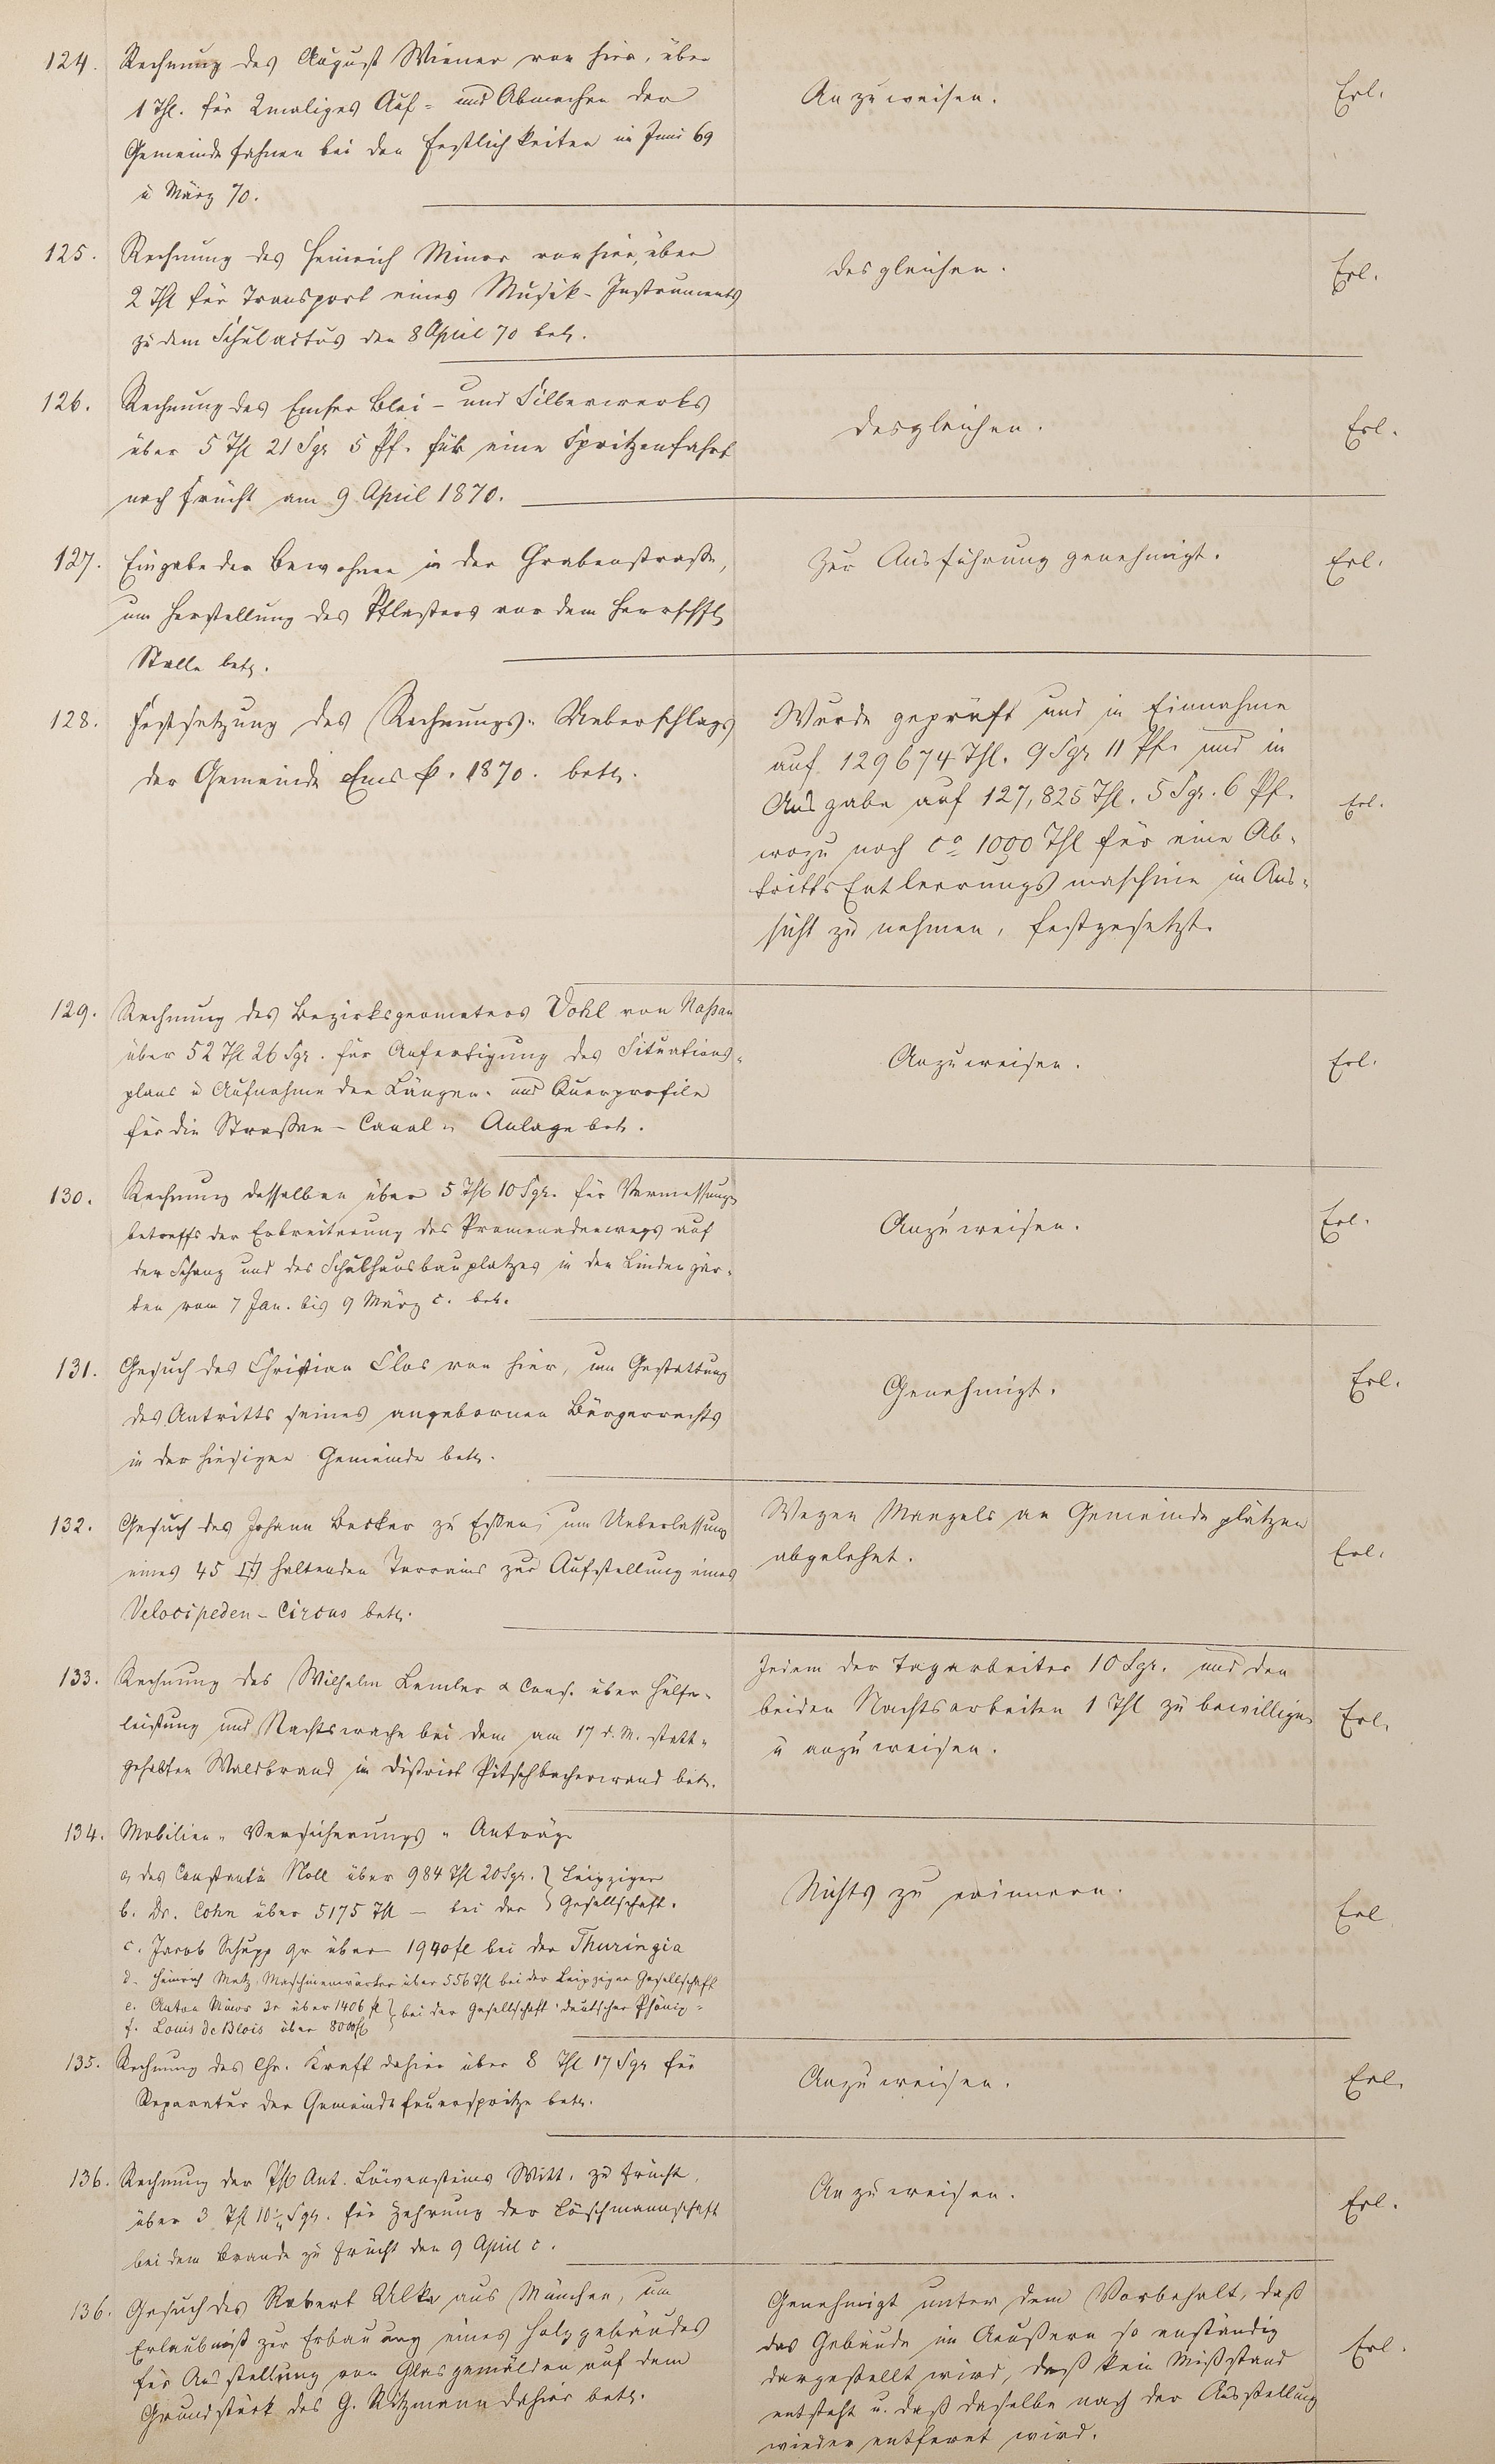 124. Rechnung des August Wiener von hier, über
1 Thl. für 2maliges Auf- und Abmachen der
Gemeindefahnen bei den Festlichkeiten im Juni 69
u März 70.
Anzuweisen.
Erl.
125. Rechnung des Heinrich Minor von hier, über
2 Thl für Transport eines Musik-Instruments
zu dem Schulactus den 8 April 70 betr.
desgleichen.
Erl.
126. Rechnung des Emser Blei- und Silberwerks
über 5 Thl 21 Sgr 5 Pf. für eine Spritzenfahrt
nach Frücht am 9 April 1870.
desgleichen.
Erl.
127. Eingabe der Bewohner in der Grabenstraße,
um Herstellung des Pflasters vor dem Herrschftl
Stalle betr.
Zur Ausführung genehmigt.
Erl.
128. Festsetzung des Rechnungs-Ueberschlags
der Gemeinde Ems p. 1870. betr.
Wurde geprüft und in Einnahme
auf 129674 Thl. 9 Sgr 11 Pf. und in
Ausgabe auf 127,825 Thl. 5 Sgr. 6 Pf.
wozu noch ca 1000 Thl für eine Ab-
tritts Entleerungsmaschine in Aus-
sicht zu nehmen, festgesetzt.
Erl.
129. Rechnung des Bezirksgeometers Vohl von Naßau
über 52 Thl 26 Sgr. für Anfertigung des Situations-
plans u Aufnahme der Längen- und Querprofile
für die Straßen-Canal-Anlage betr.
Anzuweisen.
Erl.
130. Rechnung desselben über 5 Thl 10 Sgr. für Vermessung
betreffs der Erbreiterung des Promenadenwegs auf
der Schanz und des Schulhausbauplatzes in den Lindengär-
ten vom 7 Jan. bis 9 März c. betr.
Anzuweisen.
Erl.
131. Gesuch des Christian Clos von hier, um Gestattung
des Antritts seines angebornen Bürgerrechts
in der hiesigen Gemeinde betr.
Genehmigt.
Erl.
132. Gesuch des Johann Becker zu Eßen, um Ueberlassung
eines 45 haltenden Terrains zur Aufstellung eines
Velocipeden-Circus betr.
Wegen Mangels an Gemeindeplätzen
abgelehnt.
Erl.
133. Rechnung des Wilhelm Lemler & Cons. über Hülfe-
leistung und Nachtswache bei dem am 17 d. M. statt-
gehabten Waldbrand im District Pitschbacherwand betr.
Jedem der Tagarbeiter 10 Sgr. und den
beiden Nachtsarbeiten 1 Thl zu bewilligen
u anzuweisen.
Erl.
134. Mobilien-Versicherungs-Anträge
a, des Constantin Noll über 984 Thl 20 Sgr. } Leipziger
b. Dr. Cohn über 5175 Thl — bei der } Gesellschaft.
c. Jacob Schupp gr über 1940 fl bei der Thuringia
d. Heinrich Metz, Maschinenwärter über 556 Thl bei der Leipziger Gesellschaft
e. Anton Minor 3r über 1406 fl } bei der Gesellschaft "deutscher Phönix"
f. Louis de Blois über 8000 fl
Nichts zu erinnern.
Erl
135. Rechnung des Chr. Kraft dahier über 8 Thl 17 Sgr für
Reparatur der Gemeindefeuerspritze betr.
Anzuweisen.
Erl.
136. Rechnung der Ph Ant. Löwensteins Witt. zu Frücht,
über 3 Thl 10 Sgr. für Zehrung der Löschmannschaft
bei dem Brande zu Frücht den 9 April c.
Anzuweisen.
Erl.
136. Gesuch des Robert Ulke aus München, um
Erlaubniß zur Erbauung eines Holzgebäudes
für Ausstellung von Glasgemälden auf dem
Grundstück des G. Ritzmann dahier betr.
Genehmigt unter dem Vorbehalt, daß
das Gebäude im Aeußern so anständig
dargestellt wird, daß kein Mißstand
entsteht u. daß daselbe nach der Ausstellung
wieder entfernt wird.
Erl.